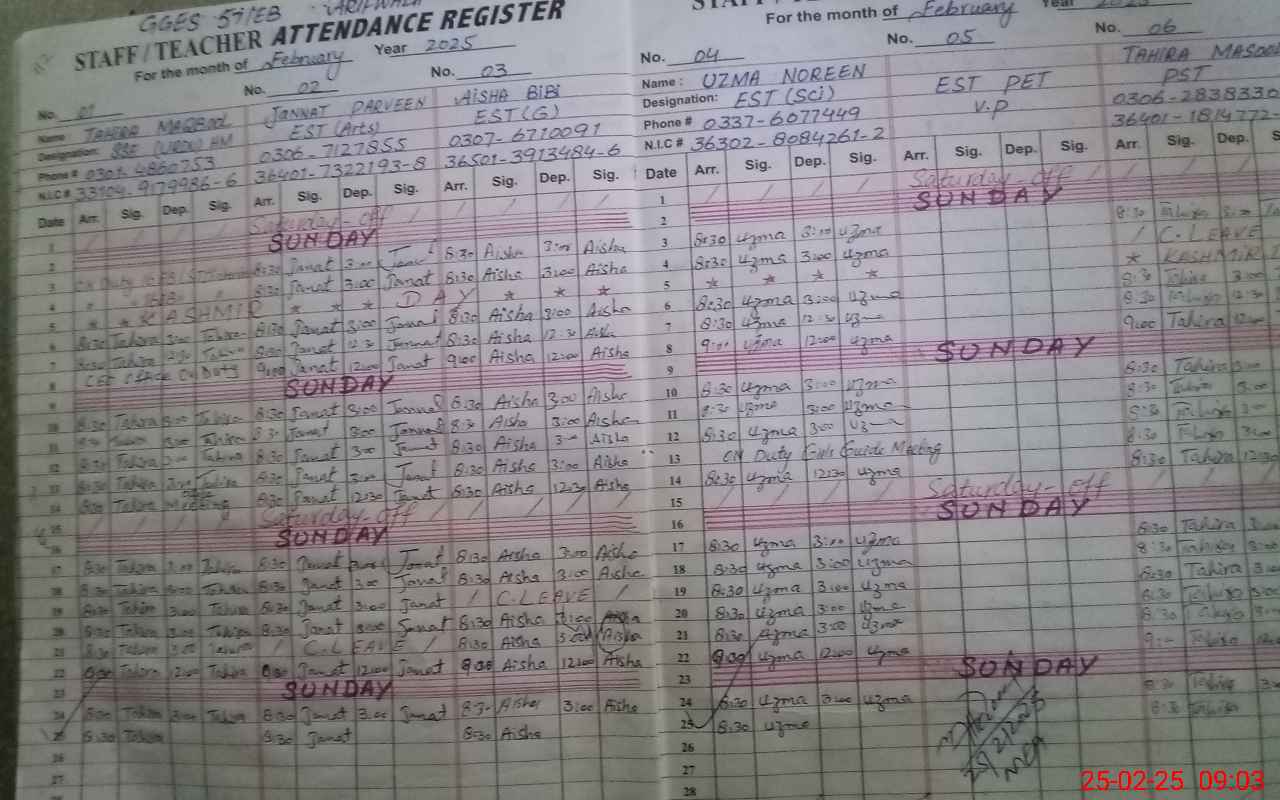 GGES 57/EB ARIFWALA
STAFF/TEACHER ATTENDANCE REGISTER
For the month of February Year 2025
No. 01
Name TAHIRA MAQBOOL
Designation: SSE HM
Phone # 0301-4860753
N.I.C # 33104-9179986-6
No. 02
JANNAT PARVEEN
EST (Arts)
0306-7127855
36401-7322193-8
No. 03
AISHA BIBI
EST (G)
0307-6710091
36501-3913484-6
Date Arr. Sig. Dep. Sig. Sig. Dep. Sig. Arr. Sig. Dep. Sig.
Saturday-off
SUNDAY
8:30 Janat 3:00 8:30 Aisha 3:00 Aisha
8:30 Janat 3:00 Janat 8:30 Aisha 3:00 Aisha
* * KASHMIR * * * DAY * * *
8:30 Tahira 3:00 Tahira 8:30 Janat 3:00 Janat 8:30 Aisha 3:00 Aisha
Tahira 12:30 Tahira 8:30 Janat 12:30 Jannat 8:30 Aisha 12:30
CEO Office On Duty 9:00 Janat 12:00 Janat 9:00 Aisha 12:00 Aisha
SUNDAY
8:30 Tahira 3:00 Tahira 8:30 Janat 3:00 Jannat 8:30 Aisha 3:00 Aisha
8:30 Tahira 3:00 Tahira 8:30 Janat 3:00 Jannat 8:30 Aisha 3:00 Aisha
8:30 Tahira 3:00 Tahira 8:30 Janat 3:00 Janat 8:30 Aisha 3:00 Aisha
8:30 Tahira 3:00 Tahira 8:30 Janat 3:00 Janat 8:30 Aisha 3:00 Aisha
8:30 Tahira Meeting 8:30 Janat 12:30 Janat 8:30 Aisha 12:30 Aisha
Saturday-off
SUNDAY
8:30 Tahira 3:00 Tahira 8:30 Janat Janat 8:30 Aisha 3:00 Aisha
8:30 Tahira 3:00 Tahira 8:30 Janat 3:00 Janat 8:30 Aisha 3:00 Aisha
8:30 Tahira 3:00 Tahira 8:30 Janat 3:00 Janat / C.LEAVE /
8:30 Tahira 3:00 Tahira 8:30 Janat 3:00 Janat 8:30 Aisha 3:00 Aisha
8:30 Tahira 3:00 Tahira / C.LEAVE / 8:30 Aisha 3:00 Aisha
9:00 Tahira 12:00 Tahira 9:00 Janat 12:00 Janat 9:00 Aisha 12:00 Aisha
SUNDAY
8:30 Tahira 3:00 Tahira 8:30 Janat 3:00 Janat 8:30 Aisha 3:00 Aisha
8:30 Tahira 8:30 Janat 8:30 Aisha
For the month of February Year 2025
No. 04
Name: UZMA NOREEN
Designation: EST (Sci)
Phone # 0337-6077449
N.I.C # 36302-8084261-2
No. 05
EST PET
V.P
No. 06
TAHIRA MASOOD
PST
0306-2838330
36401-1814772-
Date Arr. Sig. Dep. Sig. Arr. Sig. Dep. Sig. Arr. Sig. Dep.
1 Saturday-off
2 SUNDAY
3 8:30 uzma 3:00 uzma 8:30 Tahira 3:00
4 8:30 uzma 3:00 uzma / C.LEAVE
5 * * * * * KASHMIR
6 8:30 uzma 3:00 uzma 8:30 Tahira 3:00
7 8:30 uzma 12:30 uzma 8:30 Tahira 12:30
8 9:00 uzma 12:00 uzma 9:00 Tahira 12:00
9 SUNDAY
10 8:30 uzma 3:00 uzma 8:30 Tahira 3:00
11 8:30 uzma 3:00 uzma 8:30 Tahira 3:00
12 8:30 uzma 3:00 uzma 8:30 Tahira 3:00
13 ON Duty Girls Guide Meeting 8:30 Tahira 3:00
14 8:30 uzma 12:30 uzma 8:30 Tahira 12:30
15 Saturday-off
16 SUNDAY
17 8:30 uzma 3:00 uzma 8:30 Tahira 3:00
18 8:30 uzma 3:00 uzma 8:30 Tahira 3:00
19 8:30 uzma 3:00 uzma 8:30 Tahira 3:00
20 8:30 uzma 3:00 uzma 8:30 Tahira 3:00
21 8:30 uzma 3:00 uzma 8:30 Tahira 3:00
22 9:00 uzma 12:00 uzma 9:00 Tahira
23 SUNDAY
24 8:30 uzma 3:00 uzma 8:30 Tahira 3:00
25 8:30 uzma 8:30 Tahira
26
27
28
25/2/2025
MEA
25-02-25 09:03